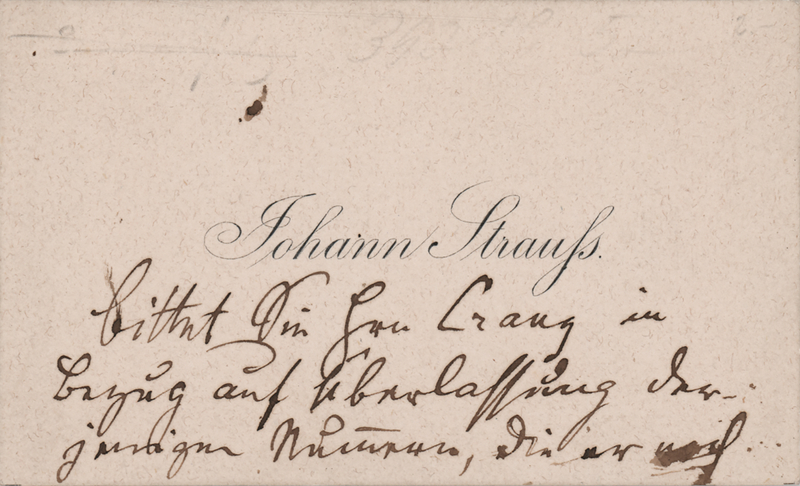 Johann Strauss.
bittet Sie Hrn Cranz in
Bezug auf Überlassung der-
jenigen Nummern, die er noch